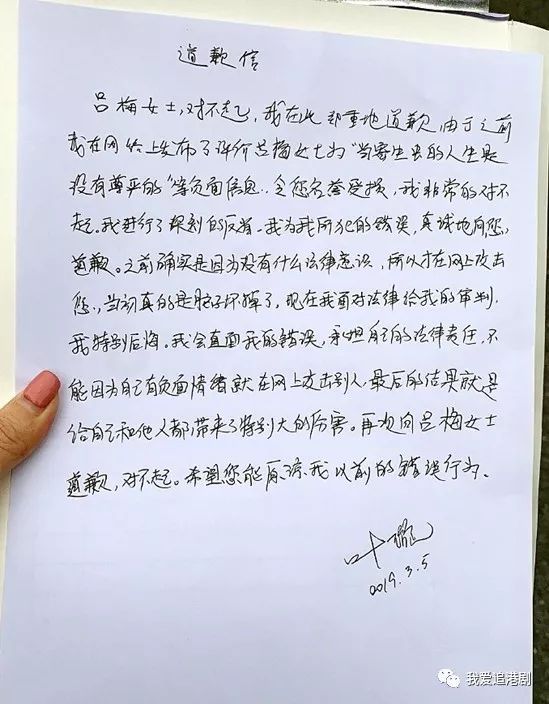 道歉信
吕梅女士,对不起,我在此郑重地道歉由于之前
我在网络上发布了评价吕梅女士为"当寄生虫的人生是
没有尊严的"等负面信息..令您名誉受损,我非常的对不
起。我进行了深刻的反省.我为我所犯的错误,真诚地向您
道歉。之前确实是因为没有什么法律意识,所以才在网上攻击
您.,当初真的是脑子坏掉了,现在我面对法律给我的审判.
我特别后悔。我会直面我的错误,承担自己的法律责任.不
能因为自己有负面情绪就在网上攻击别人,最后的结果就是
给自己和他人都带来了特别大的伤害。再次向吕梅女士
道歉,对不起。希望您能原谅我以前的错误行为.
叶璇
2019.3.5
我爱追港剧